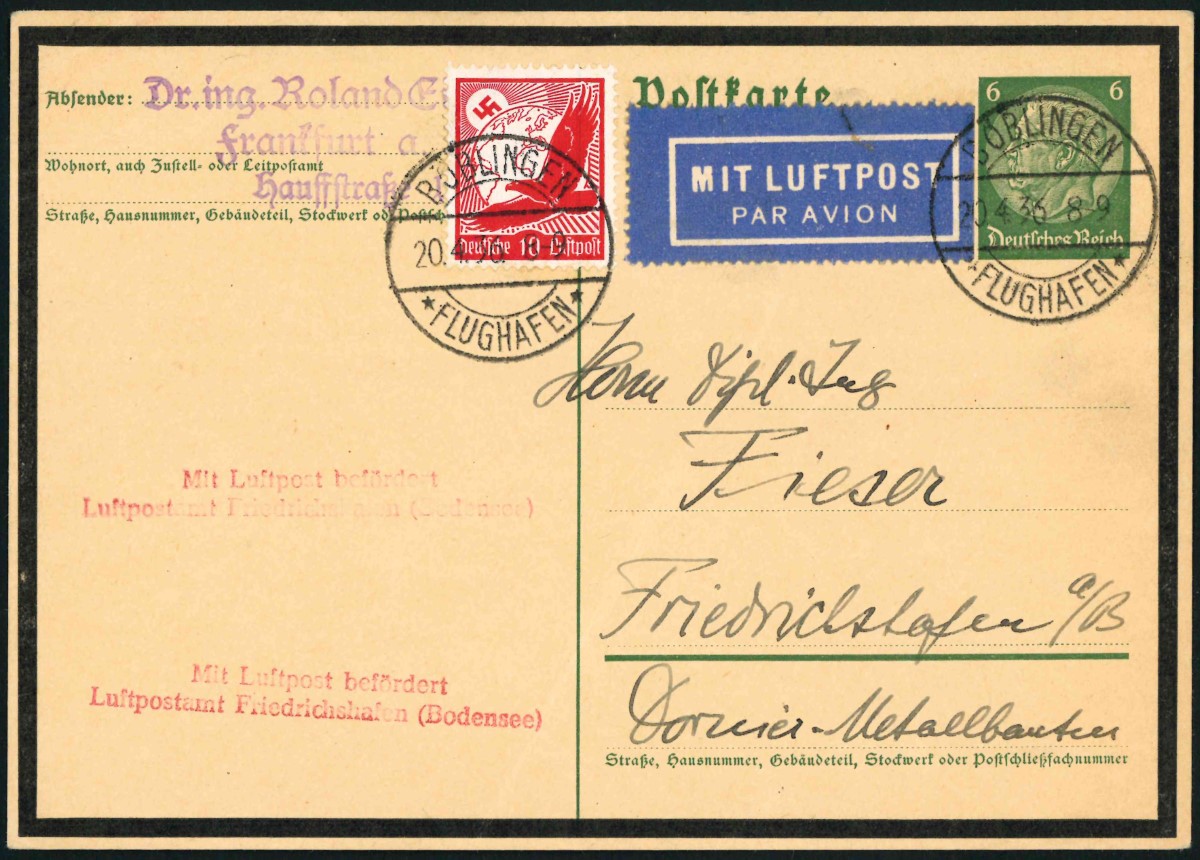 Absender: Dr.ing. Roland
Frankfurt a.
Wohnort, auch Zustell- oder Leitpostamt
Hauffstraße
Straße, Hausnummer, Gebäudeteil, Stockwerk od
Deutsche 15 Luftpost
BÖBLINGEN
20.4.36. 8-9
FLUGHAFEN
Postkarte
MIT LUFTPOST
PAR AVION
6 6
Deutsches Reich
BÖBLINGEN
20.4.36. 8-9
FLUGHAFEN
Herrn Dipl. Ing
Fieser
Friedrichshafen a/B
Dornier-Metallbauten
Straße, Hausnummer, Gebäudeteil, Stockwerk oder Postschließfachnummer
Mit Luftpost befördert
Luftpostamt Friedrichshafen (Bodensee)
Mit Luftpost befördert
Luftpostamt Friedrichshafen (Bodensee)